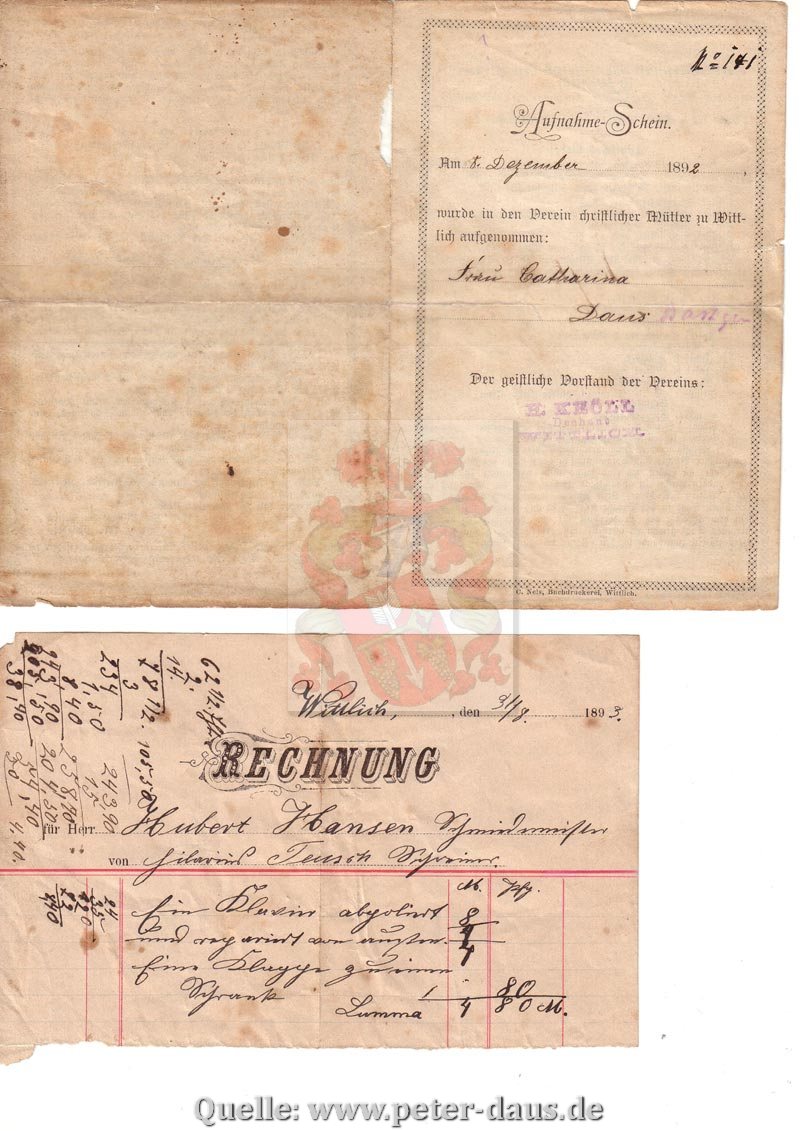 No 141
Aufnahme-Schein.
Am 8. Dezember 1892,
wurde in den Verein christlicher Mütter zu Witt-
lich aufgenommen:
Frau Catharina
Daus
Der geistliche Vorstand der Vereins:
H. KRÖLL
Dechant
WITTLICH.
C. Nels, Buchdruckerei, Wittlich.
Wittlich, den 31/8. 1893.
RECHNUNG
für Herr Hubert Hansen Schmiedemeister
von Hilarius Teusch Schreiner.
M. Pfg.
Ein Klavier abpoliert 8
und repariert von außen. 4
Eine Klappe zu einem
Schrank 80
Summa 4 80 M.
62 1/2
14
3
234
1.50
15
24390
8 40
38,40
4.40.
24
35
440
Quelle: www.peter-daus.de